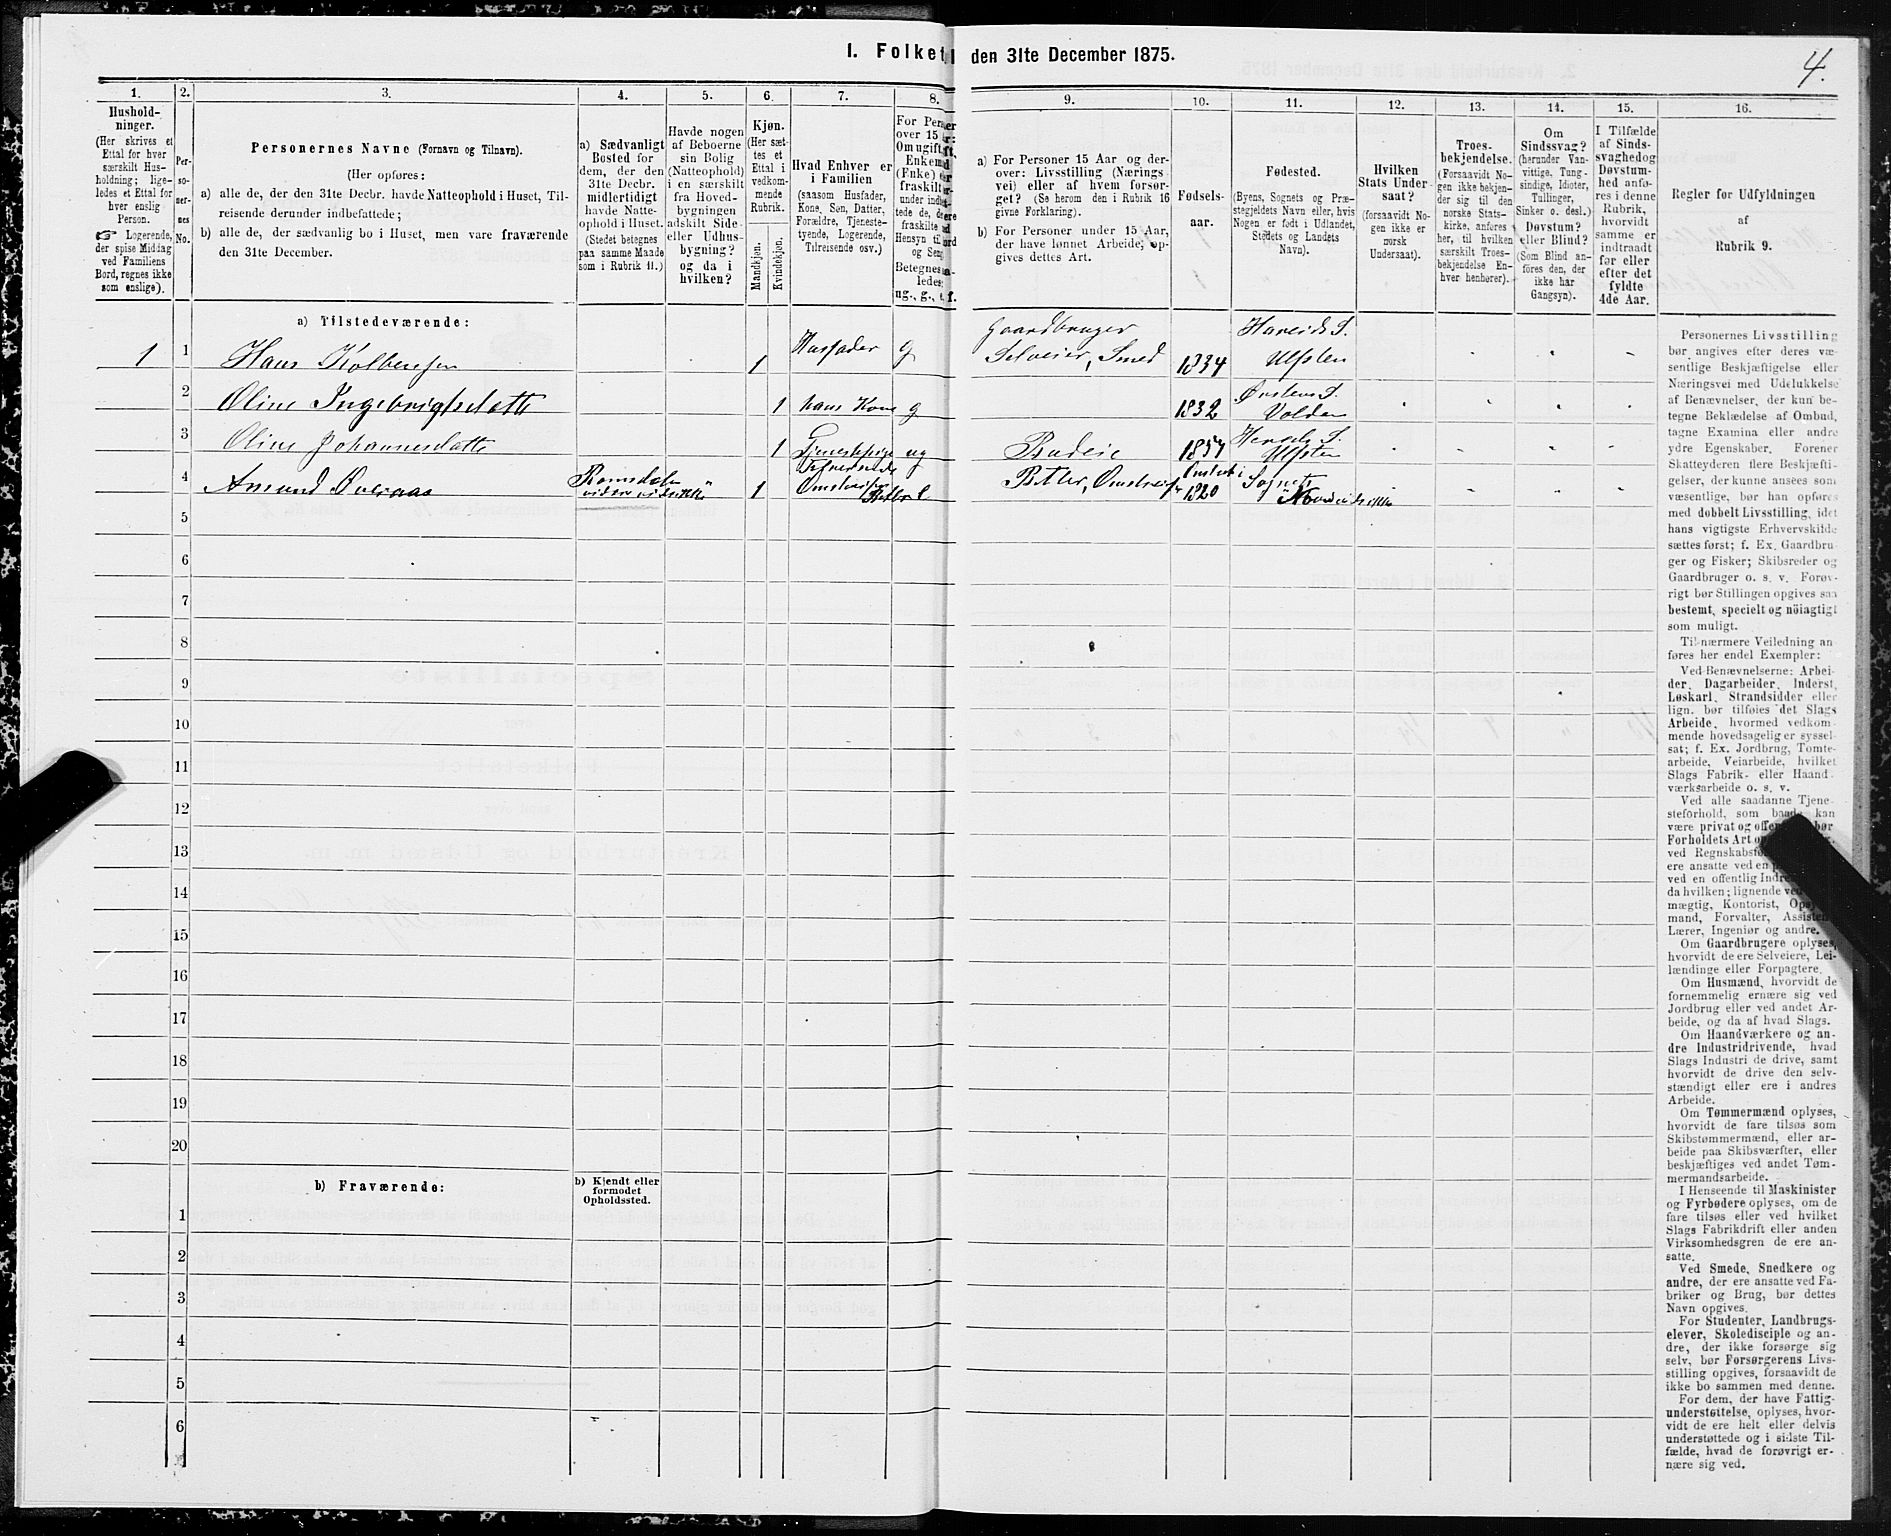 I. Folket
den 31te December 1875.
4.
1.
2.
3.
4.
5.
6.
7.
8.
9.
10.
11.
12.
13.
14.
15.
16.
Hushold-
ninger.
(Her skrives et
Ettal for hver
særskilt Hus-
holdning; lige-
ledes et Ettal for
hver enslig
Person.
☞ Logerende,
der spise Middag
ved Familiens
Bord, regnes ikke
som enslige).
Per-
so-
ner-
nes
No.
Personernes Navne (Fornavn og Tilnavn).
(Her opføres:
a) alle de, der den 31te Decbr. havde Natteophold i Huset, Til-
reisende derunder indbefattede;
b) alle de, der sædvanlig bo i Huset, men vare fraværende
den 31te December.
a) Sædvanligt
Bosted for
dem, der den
31te Decbr.
midlertidigt
havde Natte-
ophold i Huset.
(Stedet betegnes
paa samme Maade
som i Rubrik 11.)
Havde nogen
af Beboerne
sin Bolig
(Natteophold)
i en særskilt
fra Hoved-
bygningen
adskilt Side-
eller Udhus-
bygning?
og da i
hvilken?
Kjøn.
(Her sæt-
tes et
Ettal i
vedkom-
mende
Rubrik.
Mandkjøn.
Kvindekjøn.
Hvad Enhver er
i Familien
(saasom Husfader,
Kone, Søn, Datter,
Forældre, Tjeneste-
tyende, Logerende,
Tilreisende osv.)
a) For Personer 15 Aar og der-
over: Livsstilling (Nærings-
vei) eller af hvem forsør-
get? (Se herom den i Rubrik 16
givne Forklaring).
b) For Personer under 15 Aar,
der have lønnet Arbeide, op-
gives dettes Art.
Fødsels-
aar.
Fødested.
(Byens, Sognets og Præ-
stegjeldets Navn eller, hvis
Nogen er født i Udlandet,
Stedets og Landets
Navn).
Hvilken
Stats Under-
saat?
(forsaavidt No-
gen ikke er
norsk
Undersaat).
Troes-
bekjendelse.
(Forsaavidt No-
gen ikke bekjen-
der sig til den
norske Stats-
kirke, anføres
her, til hvilken
særskilt Troes-
bekjendelse En-
hver henhører).
Om
Sindssvag?
(herunder Van-
vittige, Tung-
sindige, Idioter,
Tullinger,
Sinker o. desl.)
Døvstum?
eller Blind?
(Som Blind an-
føres den, der
ikke har
Gangsyn).
I Tilfælde
af Sinds-
svaghedog
Døvstum-
hed anfø-
res i denne
Rubrik,
hvorvidt
samme er
indtraadt
før eller
efter det
fyldte
4de Aar.
Regler for Udfyldningen
af
Rubrik 9.
a) Tilstedeværende:
1 1 Hans Kolbensen 1 Husfader g Gaardbruger Selveier, Smed 1834 Hareids S. Ulfsten
2 Oline Ingebrigtsdatte 1 hans Kone g 1832 Ørstens S. Volden
3 Oline Johannesdatte 1 Tjenestepige ug Budeie 1857 Ulfsten
4 Amund Overaas Romsdalen 1 1820
5
6
7
8
9
10
11
12
13
14
15
16
17
18
19
20
b) Fraværende:
b) Kjendt eller
formodet
Opholdssted.
1
2
3
4
5
6
Personernes Livsstilling
bør angives efter deres væ-
sentlige Beskjæftigelse eller
Næringsvei med Udelukkelse
af Benævnelser, der kun be-
tegne Beklædelse af Ombud,
tagne Examina eller andre
ydre Egenskaber. Forener
Skatteyderen flere Beskjæfti-
gelser, der kunne ansées som
væsentlige, bør han opføres
med dobbelt Livsstilling, idet
hans vigtigste Erhvervskilde
sættes først; f. Ex. Gaardbru-
ger og Fisker; Skibsreder og
Gaardbruger o. s. v. Forøv-
rigt bør Stillingen opgives saa
bestemt, specielt og nöiagtigt
som muligt.
Til nærmere Veiledning an
føres her endel Exempler:
Ved Benævnelserne: Arbei-
der, Dagarbeider, Inderst,
Løskarl, Strandsidder eller
lign. bør tilføies det Slags
Arbeide, hvormed vedkom-
mende hovedsagelig er syssel-
sat; f. Ex. Jordbrug, Tomte-
arbeide, Veiarbeide, hvilket
Slags Fabrik- eller Haand-
værksarbeide o. s. v.
Ved alle saadanne Tjene-
steforhold, som baade kan
være privat og offen bør
Forholdets Art
ved
ere ansatte ved en
ved en offentlig
da hvilken; lignende ved
mægtig, Kontorist,
mand, Forvalter,
Lærer, Ingeniør og andre.
Om Gaardbrugere oplyses,
hvorvidt de ere Selveiere, Lei-
lændinge eller Forpagtere.
Om Husmænd, hvorvidt de
fornemmelig ernære sig ved
Jordbrug eller ved andet Ar-
beide, og da af hvad Slags.
Om Haandværkere og an-
dre Industridrivende, hvad
Slags Industri de drive, samt
hvorvidt de drive den selv-
stændigt eller ere i andres
Arbeide.
Om Tømmermænd oplyses,
hvorvidt de fare tilsøs som
Skibstømmermænd, eller ar-
beide paa Skibsværfter, eller
beskjæftiges ved andet Tøm-
mermandsarbeide.
I Henseende til Maskinister
og Fyrbødere oplyses, om de
fare tilsøs eller ved hvilket
Slags Fabrikdrift eller anden
Virksomhedsgren de ere an-
satte.
Ved Smede, Snedkere og
andre, der ere ansatte ved Fa-
briker og Brug, bør dettes
Navn opgives.
For Studenter, Landbrugs-
elever, Skoledisciple og an-
dre, der ikke forsørge sig
selv, bør Forsørgerens Livs-
stilling opgives, forsaavidt de
ikke bo sammen med denne.
For dem, der have Fattig-
understøttelse, oplyses, hvor-
vidt de ere helt eller delvis
understøttede og i sidste Til-
fælde, hvad de forøvrigt er-
nære sig ved.